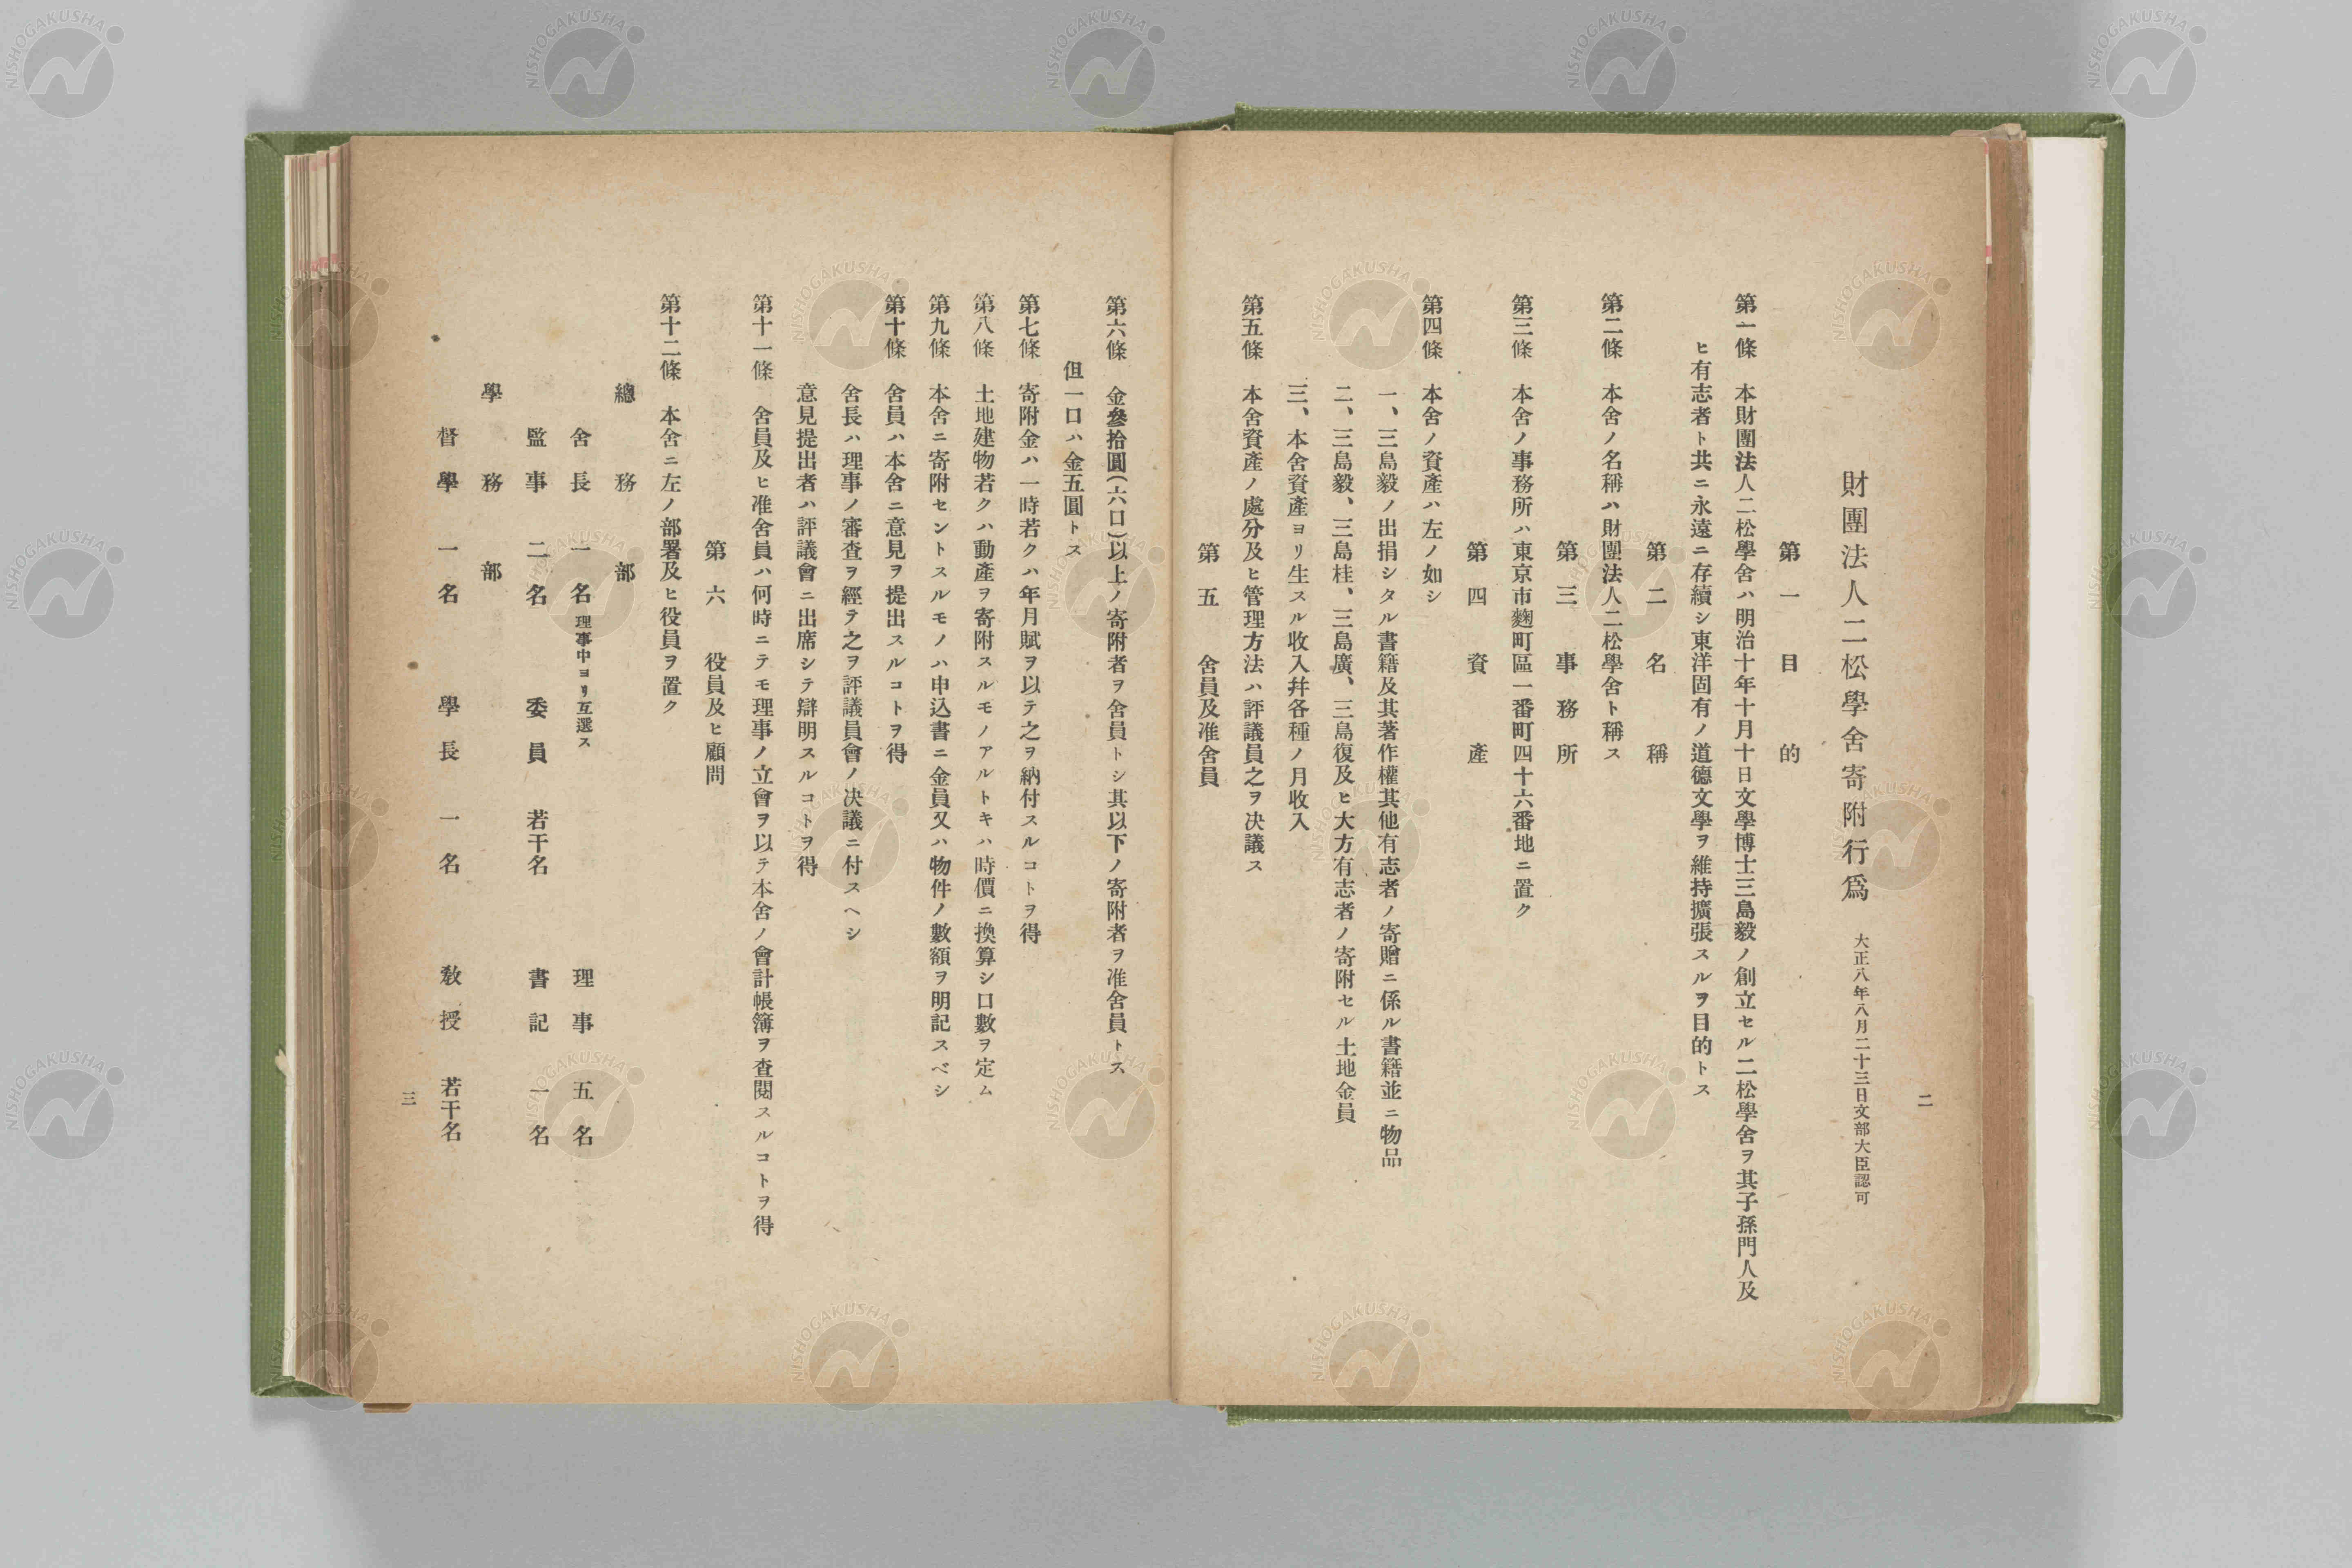 二
財團法人二松學舍寄附行爲 大正八年八月二十三日文部大臣認可
第一 目的
第一條 本財團法人二松學舍ハ明治十年十月十日文學博士三島毅ノ創立セル二松學舍ヲ其子孫門人及
ヒ有志者ト共ニ永遠ニ存續シ東洋固有ノ道德文學ヲ維持擴張スルヲ目的トス
第二 名稱
第二條 本舍ノ名稱ハ財團法人二松學舍ト稱ス
第三 事務所
第三條 本舍ノ事務所ハ東京市麴町區一番町四十六番地ニ置ク
第四 資產
第四條 本舍ノ資產ハ左ノ如シ
一、三島毅ノ出捐シタル書籍及其著作權其他有志者ノ寄贈ニ係ル書籍並ニ物品
二、三島毅、三島桂、三島廣、三島復及ヒ大方有志者ノ寄附セル土地金員
三、本舍資產ヨリ生スル收入幷各種ノ月收入
第五條 本舍資產ノ處分及ヒ管理方法ハ評議員之ヲ決議ス
第五 舍員及准舍員
第六條 金參拾圓(六口)以上ノ寄附者ヲ舍員トシ其以下ノ寄附者ヲ准舍員トス
但一口ハ金五圓トス
第七條 寄附金ハ一時若クハ年月賦ヲ以テ之ヲ納付スルコトヲ得
第八條 土地建物若クハ動產ヲ寄附スルモノアルトキハ時價ニ換算シ口數ヲ定ム
第九條 本舍ニ寄附セントスルモノハ申込書ニ金員又ハ物件ノ數額ヲ明記スベシ
第十條 舍員ハ本舍ニ意見ヲ提出スルコトヲ得
舍長ハ理事ノ審査ヲ經テ之ヲ評議員會ノ决議ニ付スヘシ
意見提出者ハ評議會ニ出席シテ辯明スルコトヲ得
第十一條 舍員及ヒ准舍員ハ何時ニテモ理事ノ立會ヲ以テ本舍ノ會計帳簿ヲ查閱スルコトヲ得
第六 役員及ヒ顧問
第十二條 本舍ニ左ノ部署及ヒ役員ヲ置ク
總務部
舍長 一名 理事中ヨリ互選ス 理事 五名
監事 二名 委員 若干名 書記 一名
學務部
督學 一名 學長 一名 敎授 若干名
三
NISHOGAKUSHA